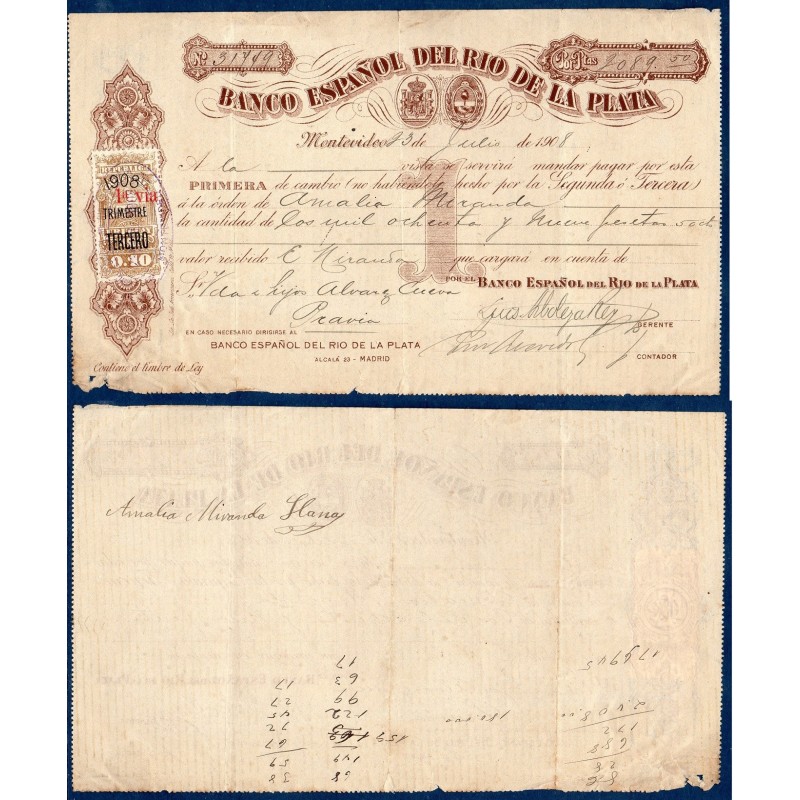 Nº 31749
Por Ptas 2089.50
BANCO ESPAÑOL DEL RIO DE LA PLATA
Montevideo 23 de Julio de 1908.
A la vista se servirá mandar pagar por esta
PRIMERA de cambio (no habiéndolo hecho por la Segunda ó Tercera)
á la órden de Amalia Miranda
la cantidad de dos mil ochenta y nueve pesetas 50 cts
valor recibido E Miranda que cargará en cuenta de
POR EL BANCO ESPAÑOL DEL RIO DE LA PLATA
Sr Vda e hijos Alvarez Cueva
Pravia
GERENTE
EN CASO NECESARIO DIRIGIRSE AL
BANCO ESPAÑOL DEL RIO DE LA PLATA
ALCALÁ 23 - MADRID
CONTADOR
1
1908
1ª Vía
TRIMESTRE
TERCERO
0.10
Contiene el timbre de Ley
Amalia Miranda Llana
17
63
17
99
27
122
45
72
159
67
149
59
58
38
180.000
175945
172
688
28